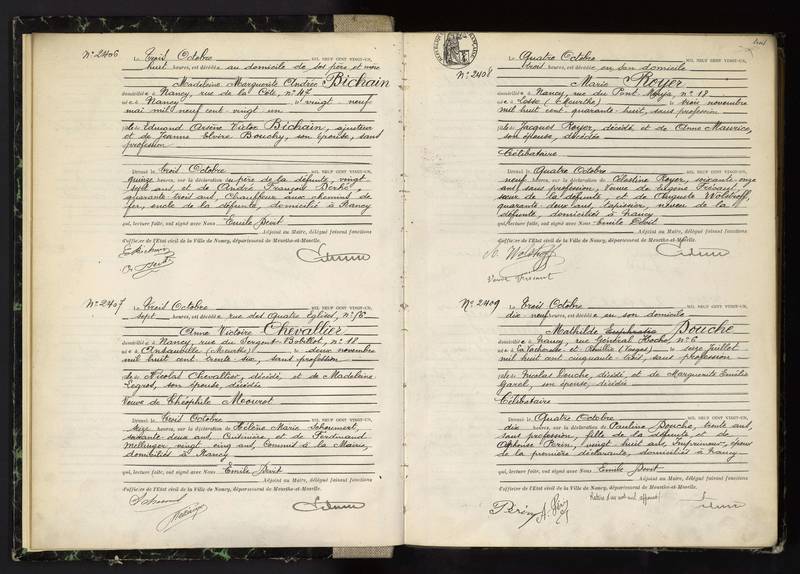 N° 2406
Le Trois Octobre MIL NEUF CENT VINGT-UN,
huit heures, est décédée au domicile de ses père et mère
Madeleine Marguerite Andrée Bichain
domiciliée à Nancy, rue de la Côte, n° 47
née à Nancy le vingt neuf
mai mil neuf cent vingt un
fille de Edmond Arsène Victor Bichain, ajusteur
et de Jeanne Elvire Bouchy, son épouse, sans
profession
Dressé le trois Octobre MIL NEUF CENT VINGT-UN,
quinze heures, sur la déclaration du père de la défunte, vingt
sept ans, et de André François
quarante trois ans, Chauffeur aux chemins de
fer, oncle de la défunte, domiciliés à Nancy
qui, lecture faite, ont signé avec Nous Emile
Adjoint au Maire, délégué faisant fonctions
d'officier de l'État civil de la Ville de Nancy, département de Meurthe-et-Moselle.
N° 2407
Le Trois Octobre MIL NEUF CENT VINGT-UN,
sept heures, est décédée rue des Quatre Eglises, n°
Anne Victoire Chevallier
domiciliée à Nancy, rue du Sergent Bobillot, n° 18
née à (Meurthe) le deux novembre
mil huit cent trente six, sans profession
fille de Nicolas Chevallier, décédé, et de Madeleine
Legros, son épouse, décédée
Veuve de Théophile Mourot
Dressé le trois Octobre MIL NEUF CENT VINGT-UN,
seize heures, sur la déclaration de Hélène Marie
soixante deux ans, Cuisinière, et de Ferdinand
vingt cinq ans, Commis à la Mairie,
domiciliés à Nancy
qui, lecture faite, ont signé avec Nous Emile
Adjoint au Maire, délégué faisant fonctions
d'officier de l'État civil de la Ville de Nancy, département de Meurthe-et-Moselle.
N° 2408
Le Quatre Octobre MIL NEUF CENT VINGT-UN,
trois heures, est décédée en son domicile
Marie Royer
domiciliée à Nancy, rue du Pont n° 18
née à (Meurthe) le trois novembre
mil huit cent quarante huit, sans profession
fille de Jacques Royer, décédé et de Anne Maurice,
son épouse, décédée
Célibataire
Dressé le Quatre Octobre MIL NEUF CENT VINGT-UN,
neuf heures, sur la déclaration de Célestine Royer, soixante onze
ans, sans profession, Veuve de Eugène
sœur de la défunte et de Auguste
quarante deux ans, tapissier, neveu de la
défunte, domiciliés à Nancy
qui, lecture faite, ont signé avec Nous Emile
Adjoint au Maire, délégué faisant fonctions
d'officier de l'État civil de la Ville de Nancy, département de Meurthe-et-Moselle.
N° 2409
Le Trois Octobre MIL NEUF CENT VINGT-UN,
dix neuf heures, est décédée en son domicile
Mathilde Bouche
domiciliée à Nancy, rue Général Hoche, n° 6
née à (Vosges) le seize Juillet
mil huit cent cinquante trois, sans profession
fille de Nicolas Bouche, décédé, et de Marguerite Emilie
Garel, son épouse, décédée
Célibataire
Dressé le Quatre Octobre MIL NEUF CENT VINGT-UN,
dix heures, sur la déclaration de Pauline Bouche, trente ans,
sans profession, fille de la défunte et de
Alphonse Perin, vingt huit ans, Imprimeur, époux
de la première déclarante, domiciliés à Nancy
qui, lecture faite, ont signé avec Nous Emile
Adjoint au Maire, délégué faisant fonctions
d'officier de l'État civil de la Ville de Nancy, département de Meurthe-et-Moselle.